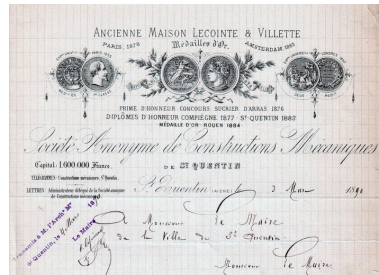 ANCIENNE MAISON LECOINTE & VILLETTE
PARIS, 1878 Médailles d'Or. AMSTERDAM, 1883
PRIME D'HONNEUR CONCOURS SUCRIER D'ARRAS 1876
DIPLÔMES D'HONNEUR COMPIÈGNE 1877 · ST QUENTIN 1882
MÉDAILLE D'OR · ROUEN 1884
Société Anonyme de Constructions Mécaniques
Capital: 1.600.000 Francs.
DE ST QUENTIN
TÉLÉGRAMMES: Constructions mécaniques, St Quentin
LETTRES: Administrateur délégué de la Société anonyme
de Constructions mécaniques
St Quentin (AISNE) le 3 Mars 1890
Transmis à M. l'Archte
St Quentin, le 4 Mars 18
Le Maire
A Monsieur le Maire
de la Ville de St Quentin
Monsieur le Maire